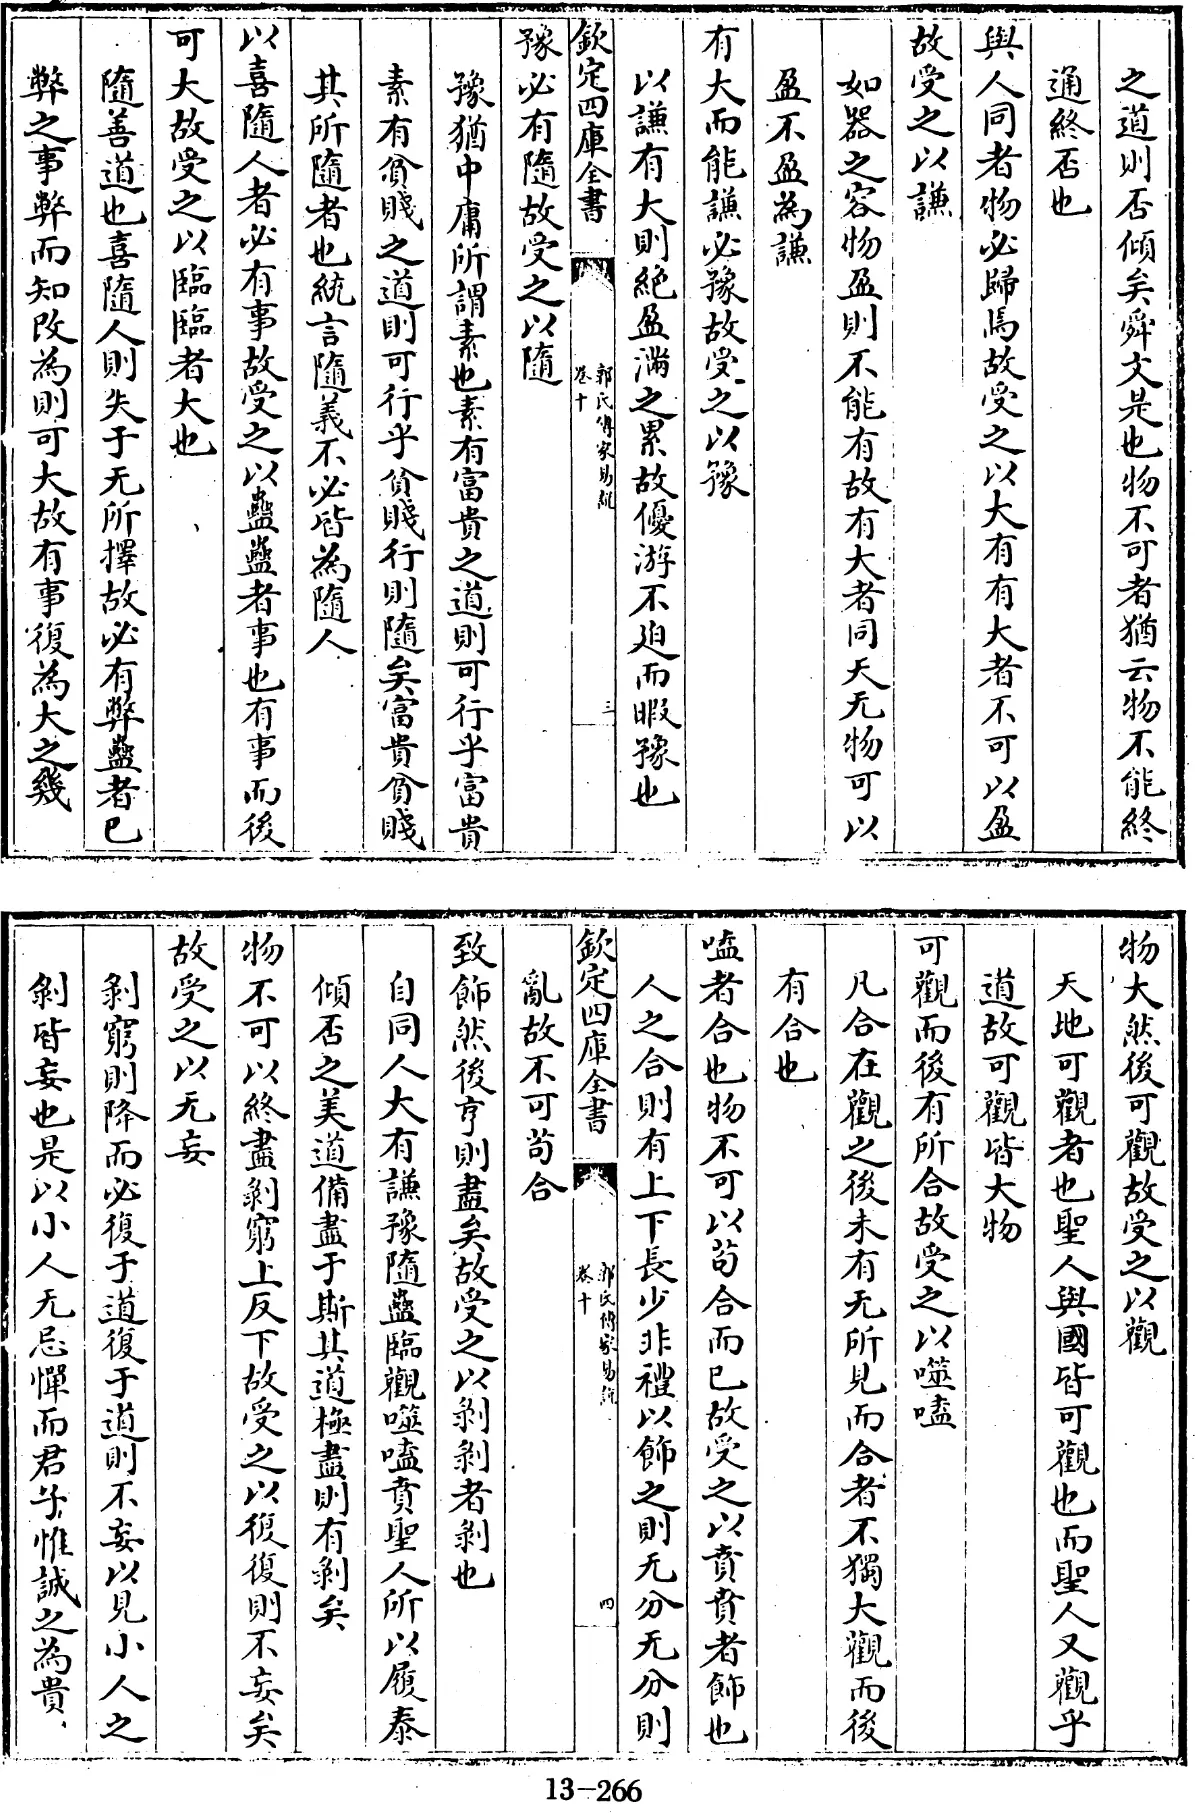 之道則否傾矣舜文是也物不可者猶云物不能終
通終否也
與人同者物必歸焉故受之以大有有大者不可以盈
故受之以謙
如器之容物盈則不能有故有大者同天无物可以
盈不盈為謙
有大而能謙必豫故受之以豫
以謙有大則絕盈滿之累故優游不迫而暇豫也
欽定四庫全書
郭氏傳家易說
卷十
三
豫必有隨故受之以隨
豫猶中庸所謂素也素有富貴之道則可行乎富貴
素有貧賤之道則可行乎貧賤行則隨矣富貴貧賤
其所隨者也統言隨義不必皆為隨人
以喜隨人者必有事故受之以蠱蠱者事也有事而後
可大故受之以臨臨者大也
隨善道也喜隨人則失于无所擇故必有弊蠱者已
弊之事弊而知改為則可大故有事復為大之幾
物大然後可觀故受之以觀
天地可觀者也聖人與國皆可觀也而聖人又觀乎
道故可觀皆大物
可觀而後有所合故受之以噬嗑
凡合在觀之後未有无所見而合者不獨大觀而後
有合也
嗑者合也物不可以苟合而已故受之以賁賁者飾也
人之合則有上下長少非禮以飾之則无分无分則
欽定四庫全書
郭氏傳家易說
卷十
四
亂故不可苟合
致飾然後亨則盡矣故受之以剝剝者剝也
自同人大有謙豫隨蠱臨觀噬嗑賁聖人所以履泰
傾否之美道備盡于斯其道極盡則有剝矣
物不可以終盡剝窮上反下故受之以復復則不妄矣
故受之以无妄
剝窮則降而必復于道復于道則不妄以見小人之
剝皆妄也是以小人无忌憚而君子惟誠之為貴
13-266